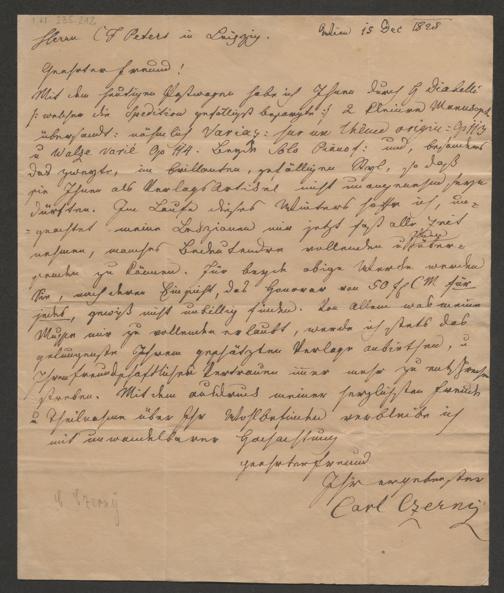 I.N. 235.212
Herrn C F Peters in Leipzig.
Wien 15 Dec 1828
Geehrter Freund!
Mit dem heutigen Postwagen habe ich Ihnen durch H Diabelli
/: welcher die Spedition gefälligst besorgte :/ 2 kleinere Manuscripte
übersandt: nähmlich Variaz: sur un Thême origin: Op 113
u Walze varié Op 114. Beyde Solo Pianof: und, besonders
das zweyte, im brillanten, gefälligen Styl, so daß
sie Ihnen als Verlagsartikel nicht unangenehm seyn
dürften. Im Laufe dieses Winters hoffe ich, un-
=geachtet meine Lekzionen mir jetzt fast alle Zeit
nehmen, manches Bedeutendere vollenden u Ihnen über-
senden zu können. Für beyde obige Werke werden
Sie, nach deren Einsicht, das Honorar von 50 f CM für
jedes, gewiß nicht unbillig finden. Von allem was meine
Muße mir zu vollenden erlaubt, werde ich stets das
gelungenste Ihrem geschätzten Verlage anbiethen, u
Ihrem freundschaftlichen Vertrauen immer mehr zu entsprechen
streben. Mit dem Ausdruck meiner herzlichsten Freude
u Theilnahme über Ihr Wohlbefinden verbleibe ich
mit unwandelbarer Hochachtung
geehrter Freund
Ihr ergebenster
Carl Czerny
C Czerny